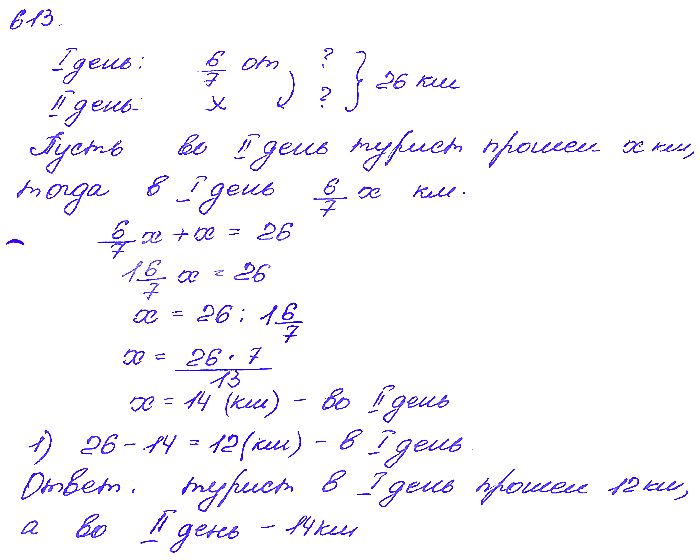 613.
I день: 6/7 от ? } 26 км
II день: x ?
Пусть во II день турист прошел x км,
тогда в I день 6/7 x км.
6/7 x + x = 26
1 6/7 x = 26
x = 26 : 1 6/7
x = 26 · 7 / 13
x = 14 (км) - во II день
1) 26 - 14 = 12 (км) - в I день
Ответ. турист в I день прошел 12 км,
а во II день - 14 км